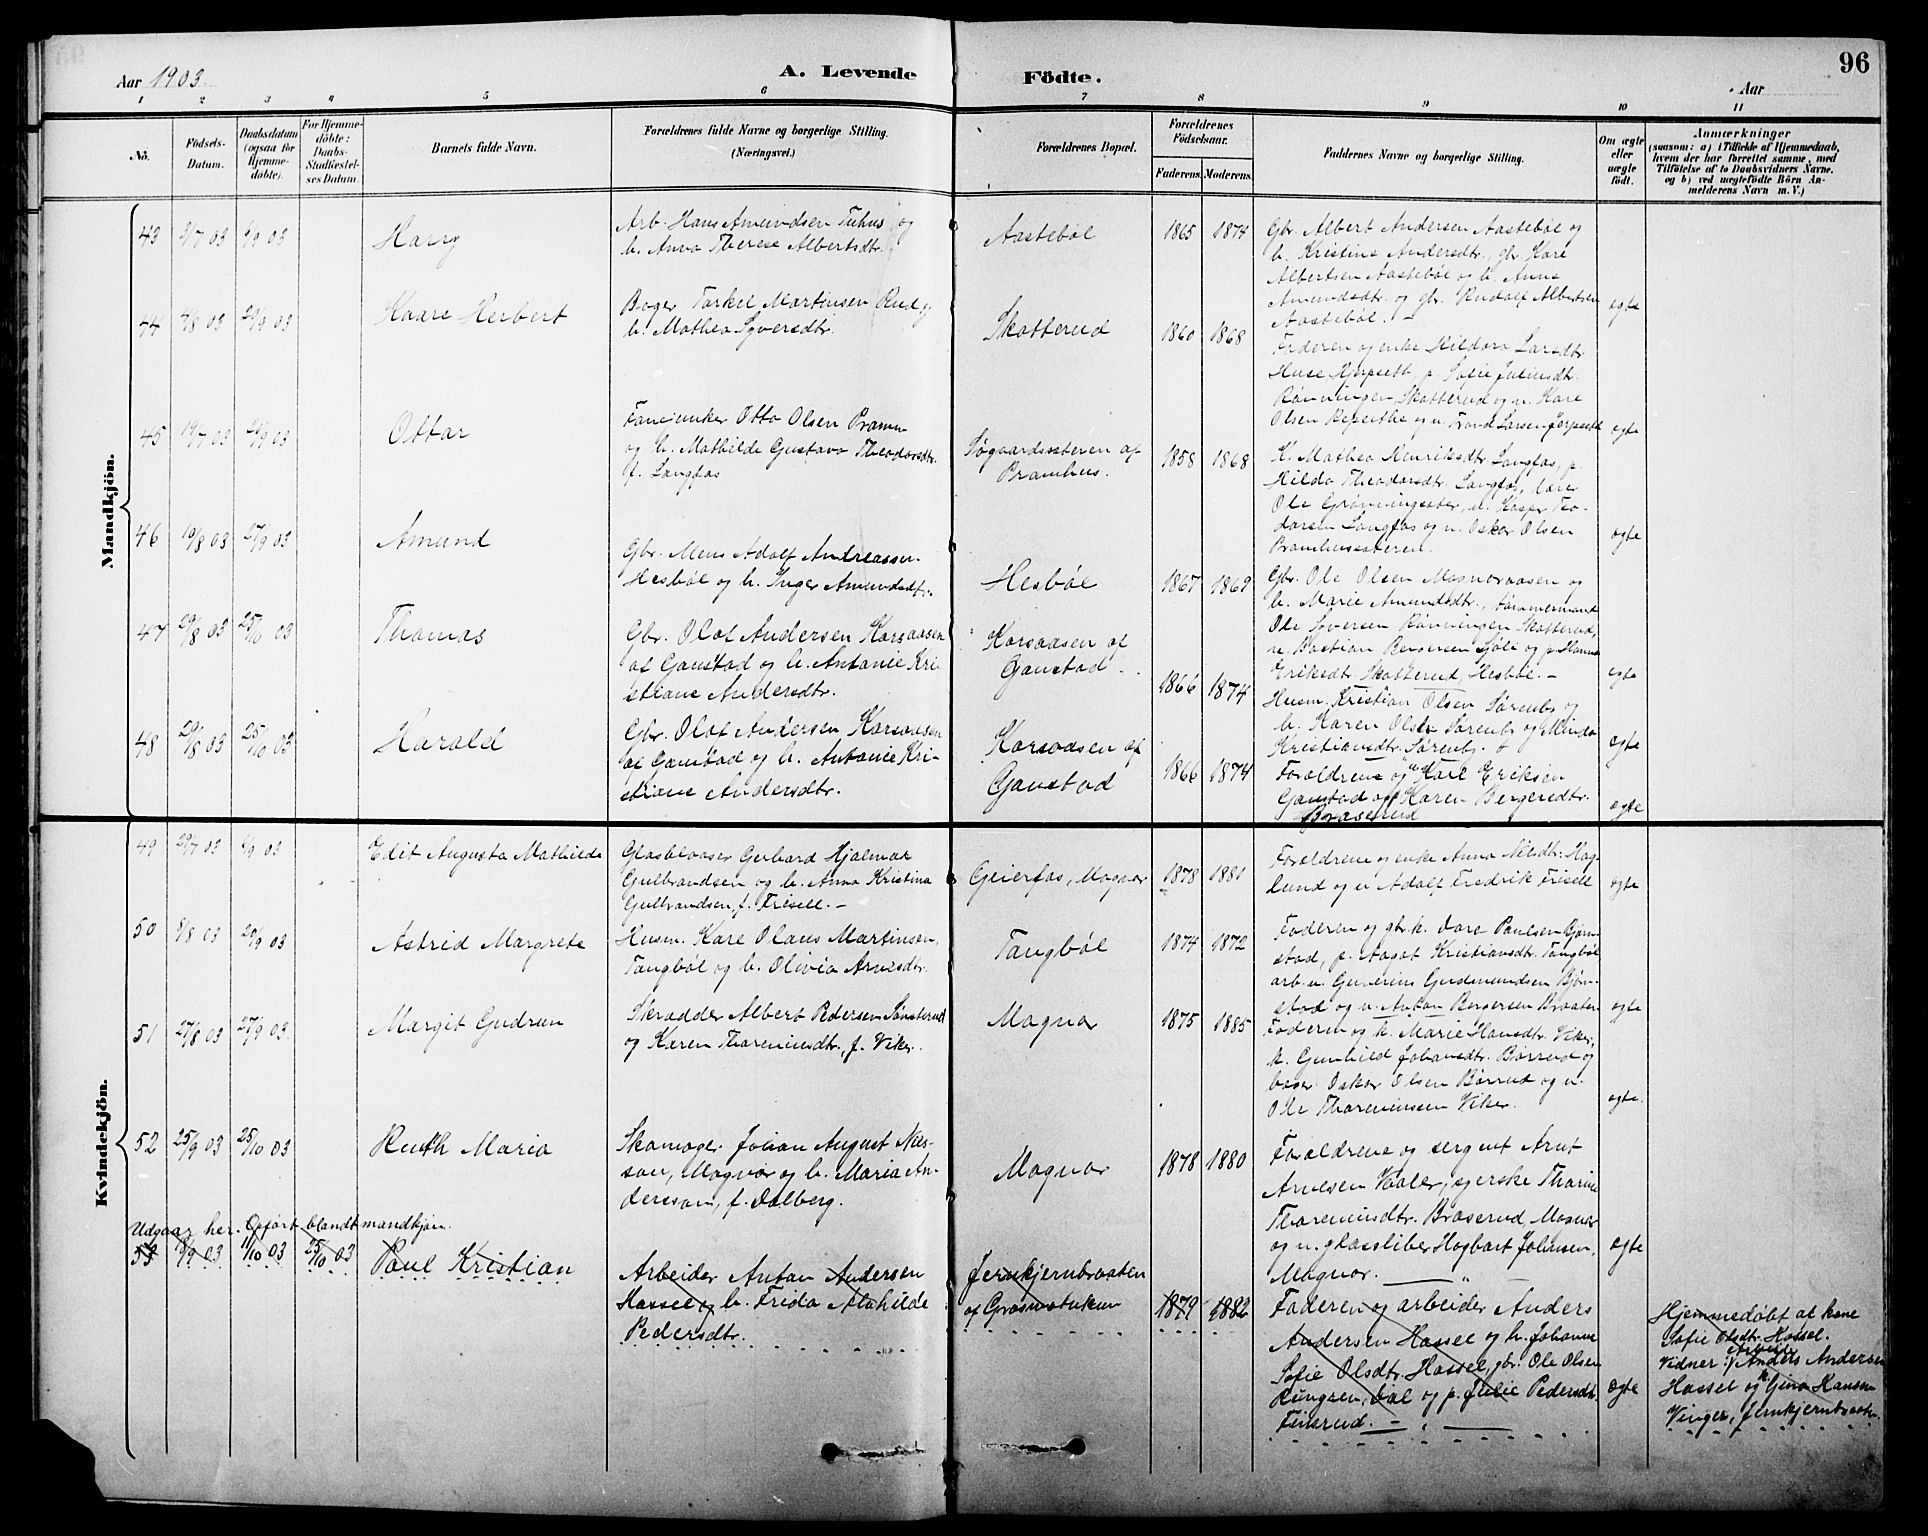 96
Aar 1903.
A. Levende Födte.
Aar
1 2 3 4 5 6 7 8 9 10 11
No.
Födsels-
Datum.
Daabsdatum
(ogsaa for
Hjemme-
döbte).
For Hjemme-
döbte:
Daabs-
Stadfæstel-
ses Datum.
Barnets fulde Navn.
Forældrenes fulde Navne og borgerlige Stilling.
(Næringsvei.)
Forældrenes Bopæl.
Forældrenes
Födselsaar.
Faderens. Moderens.
Faddernes Navne og borgerlige Stilling.
Om ægte
eller
uægte
født.
Anmærkninger
(saasom: a) i Tilfælde af Hjemmedaab,
hvem der har forrettet samme, med
Tilföielse af to Daabsvidners Navne,
og b) ved uægtefödte Börn An-
melderens Navn m. V.)
Mandkjön.
43
Harry
Arb. Hans Amundsen Tuhus og
h. Anna Therese Albertsdtr.
Aastebøl
1865 1874
Gbr. Albert Andersen Aastebøl og
h. Kristine Andersdtr., gbr. Kare
Albertsen Aastebøl og h. Anne
Amundsdtr. og gbr. Rudolf Albertsen
Aastebøl.
ægte
44 20/9 03
Kaare Herbert
Bager Torkel Martinsen Rud og
h. Mathea Syversdtr.
Skotterud
1860 1868
Faderen og enke Hildora Larsdtr.
p. Sofie Juliusdtr.
Rønningen, Skotterud og u. Kare
Olsen og u. Trond Larsen
ægte
45 19/7 03 20/9 03
Ottar
Otto Olsen Bramn
og h. Mathilde Gustava Theodorsdtr.
f. Langfos
Søgaardssæteren af
Bramhus.
1858 1868
K. Mathea Henriksdtr. Langfos, p.
Hilda Theodorsdtr. Langfos,
Ole u. Kasper Teo-
dorsen Langfos og u. Oskar Olsen
Bramhussæteren.
ægte
46 19/8 03 27/9 03
Amund
Gbr. Mens Adolf Andreassen
Hesbøl og h. Inger Amundsdtr.
Hesbøl
1867 1869
Gbr. Ole Olsen Mosneraasen og
h. Marie Amundsdtr., tømmermand
Ole Syversen Rønningen Skotterud,
u. Bastian Bergersen Sjøli og p. Hanna
Eriksdtr. Skotterud, Hesbøl.
ægte
47 29/8 03 25/10 03
Thomas
Gbr. Olof Andersen Korsaasen
af Ganstad og h. Antonie Kri
stiane Andersdtr.
Korsaasen af
Ganstad
1866 1874
Husm. Kristian Olsen Sørenbg og
h. Karen Olsdtr Sørenbg og Minda
Kristiansdtr. Sørenbg.
ægte
48 29/8 03 25/10 03
Harald
Gbr. Olof Andersen Korsaasen
af Ganstad og h. Antonie Kri-
stiane Andersdtr.
Korsaasen af
Ganstad
1866 1874
Forældrene og Karl Eriksen
Ganstad og Karen Bergersdtr.
Braserud
ægte
Kvindekjön.
49 29/7 03
Edit Augusta Mathilde
Glasblaaser Gerhard Hjalmar
Gulbrandsen og h. Anna Kristina
Gulbrandsen, f. Frisell.
Geierfos, Magnor
1878 1881
Forældrene og enke Anna Nilsdtr. Hag-
lund og u Adolf Fredrik Frisell
ægte
50 20/9 03
Astrid Margrete
Husm. Kare Olaus Martinsen
Tangbøl og h. Olivia Arnesdtr.
Tangbøl
1874 1872
Faderen og gbr.k. Paulsen Bjørn-
stad, p. Aagot Kristiansdtr. Tangbøl
arb. u. Guverius Gudmundsen Bjørn-
stad og u. Anton Bergersen Braaten
ægte
51 27/8 03 27/9 03
Margit Gudrun
Skrædder Albert Pedersen Sønsterud
og Karen Thoreniusdtr., f. Viker.
Magnor
1875 1885
Faderen og k. Marie Hansdtr. Viker,
k. Gunhild Johansdtr. Børrud og
baser Oskar Olsen Børrud og u.
Ole Thoreniussen Viker.
ægte
52 25/9 03 25/10 03
Ruth Maria
Skomager Johan August Nils-
son, Magnor og h. Maria An-
dersson, f. Dalberg.
Magnor
1878 1880
Forældrene og sergent Arnt
Arnesen Vaaler, syerske Tharine
Thoreniusdtr. Braserud, Magnor
og u. glassliber Hagbart Johansen,
Magnor.
ægte
Udgaar her. Opført blandt mandkjøn.
53 25/10 03
Paul Kristian
Arbeider Anton Andersen
Hassel og h. Frida Mathilde
Pedersdtr.
Jernkjernbraaten
af Grasmostuken
1879 1882
Faderen og arbeider Anders
Andersen Hassel og h. Johanne
Sofie Olsdtr. Hassel, gbr. Ole Olsen
Ringsen, og p. Julie Pedersdtr.
Feiserud.
ægte
Hjemmedøbt af kone
Sofie Olsdtr. Hassel.
Vidner: Arbeider Anders Andersen
Hassel og k. Gina Hansen
Vinger, Jernkjernbraaten.